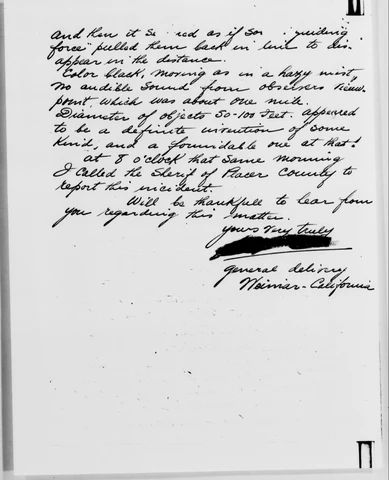 and then it se red as if som guiding
force" pulled them back in line to dis-
appear in the distance.
Color black, moving as in a hazy mist,
no audible sound from observers view-
point, which was about one mile.
Diameter of objects 50-100 feet. Appeared
to be a definite invention of some
kind, and a formidable one at that!
at 8 o'clock that same morning
I called the Sherif of Placer County to
report this incident.
Will be thankfull to hear from
you regarding this matter.
yours very truly
general delivery
Weimar-California